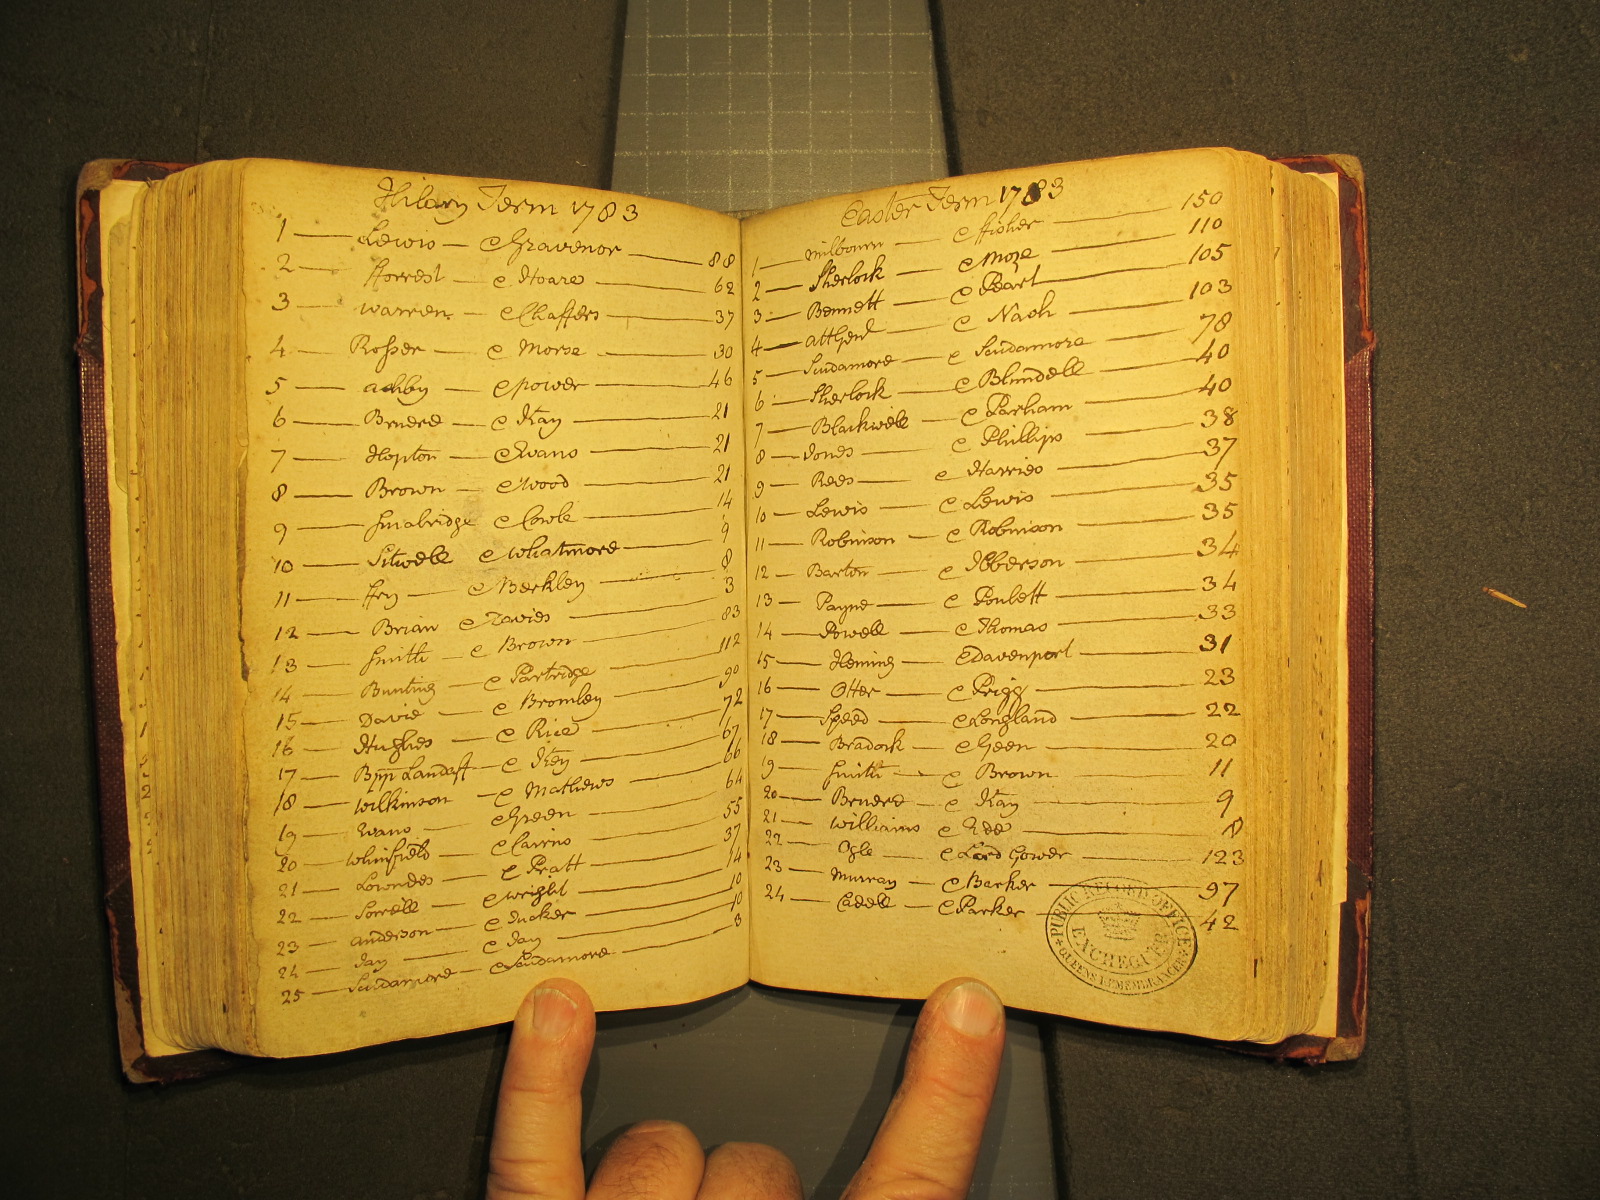 Hilary Term 1783
1 — Lewis — c Gravenor — 88
2 — fforrest c Hoare — 62
3 — Warren — c Chaffers — 37
4 — Rosser — c Morse — 30
5 — Ashby — c Power — 46
6 — Bruere — c Kay — 21
7 — Hopton — c Evans — 21
8 — Brown — c Wood — 21
9 — Smabridge c Cowle — 14
10 — Sitwell c Whatmore — 9
11 — ffry — c Berkley — 8
12 — Brian c Davies — 3
13 — Smith — c Brown — 83
14 — Bunting — c Partridge — 112
15 — David — c Bromley — 90
16 — Hughes — c Rice — 72
17 — Bpp Landaff — c Key — 67
18 — Wilkinson — c Mathews — 66
19 — Evans — c Green — 64
20 — Whinfield — c Cairns — 55
21 — Lowndes — c Pratt — 37
22 — Sorrell — c Wright — 14
23 — Anderson — c Tucker — 10
24 — Jay — c Jay — 10
25 — Scudamore — c Scudamore — 3
Easter Term 1783
1 — Milbourn — c ffisher — 150
2 — Sherlock — c More — 110
3 — Bennett — c Peart — 105
4 — Att Gen — c Nash — 103
5 — Scudamore — c Scudamore — 78
6 — Sherlock — c Blundell — 40
7 — Blackwell — c Parham — 40
8 — Jones — c Phillips — 38
9 — Rees — c Harries — 37
10 — Lewis — c Lewis — 35
11 — Robinson — c Robinson — 35
12 — Barton — c Ibberson — 34
13 — Payne — c Poulett — 34
14 — Powell — c Thomas — 33
15 — Fleming — c Davenport — 31
16 — Otter — c Prigg — 23
17 — Speed — c Longland — 22
18 — Bradock — c Geen — 20
19 — Smith — c Brown — 11
20 — Bruere — c Kay — 9
21 — Williams c Ede — 8
22 — Ogle — c Lord Gower — 123
23 — Murray — c Barker — 97
24 — Cadell — c Parker — 42
PUBLIC RECORD OFFICE
EXCHEQUER
QUEENS REMEMBRANCER